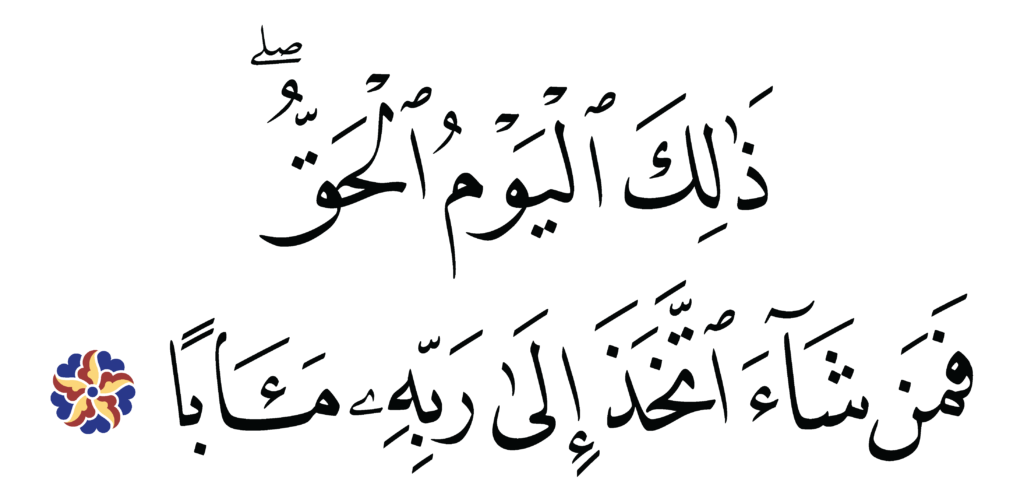 ذَٰلِكَ ٱلْيَوْمُ ٱلْحَقُّ ۖ
فَمَن شَآءَ ٱتَّخَذَ إِلَىٰ رَبِّهِۦ مَـَٔابًا